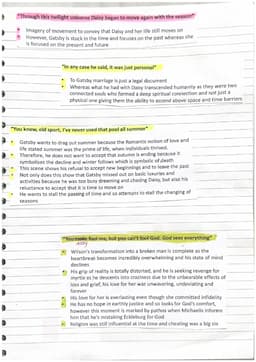 "Through this twilight universe Daisy began to move again with the season"
Imagery of movement to convey that Daisy and her life still moves on
However, Gatsby is stuck in the time and focuses on the past whereas she
is focused on the present and future
"In any case he said, it was just personal"
To Gatsby marriage is just a legal document
Whereas what he had with Daisy transcended humanity as they were two
connected souls who formed a deep spiritual connection and not just a
physical one giving them the ability to ascend above space and time barriers
"You know, old sport, I've never used that pool all summer"
Gatsby wants to drag out summer because the Romantic notion of love and
life stated summer was the prime of life, when individuals thrived.
Therefore, he does not want to accept that autumn is ending because it
symbolises the decline and winter follows which is symbolic of death
This scene shows his refusal to accept new beginnings and to leave the past
Not only does this show that Gatsby missed out on basic luxuries and
activities because he was too busy dreaming and chasing Daisy, but also his
reluctance to accept that it is time to move on
He wants to stall the passing of time and so attempts to stall the changing of
seasons
fool me, but you can't fool God. God sees everything"
Wilson's transformation into a broken man is complete as the
heartbreak becomes incredibly overwhelming and his state of mind
declines
His grip of reality is totally distorted, and he is seeking revenge for
Myrtle as he descends into craziness due to the unbearable effects of
loss and grief, his love for her was unwavering, undeviating and
forever
His love for her is everlasting even though she committed infidelity
He has no hope in earthly justice and so looks for God's comfort,
however this moment is marked by pathos when Michaelis informs
him that he's mistaking Eckleburg for God
Religion was still influential at the time and cheating was a big sin